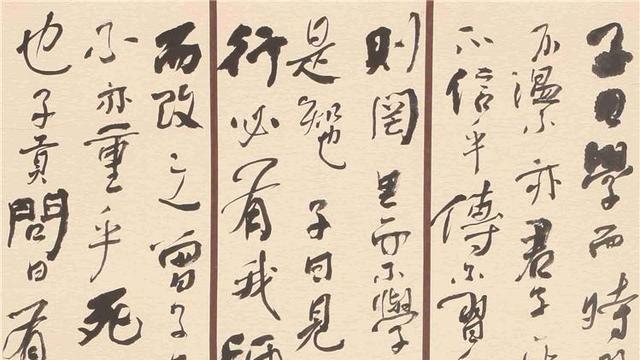 子曰學而時
不慍不亦君子
不信乎傳不習
則罔思而不學
是知也子曰見
行必有我師
而改之曾子
不亦重乎死
也子貢問曰有